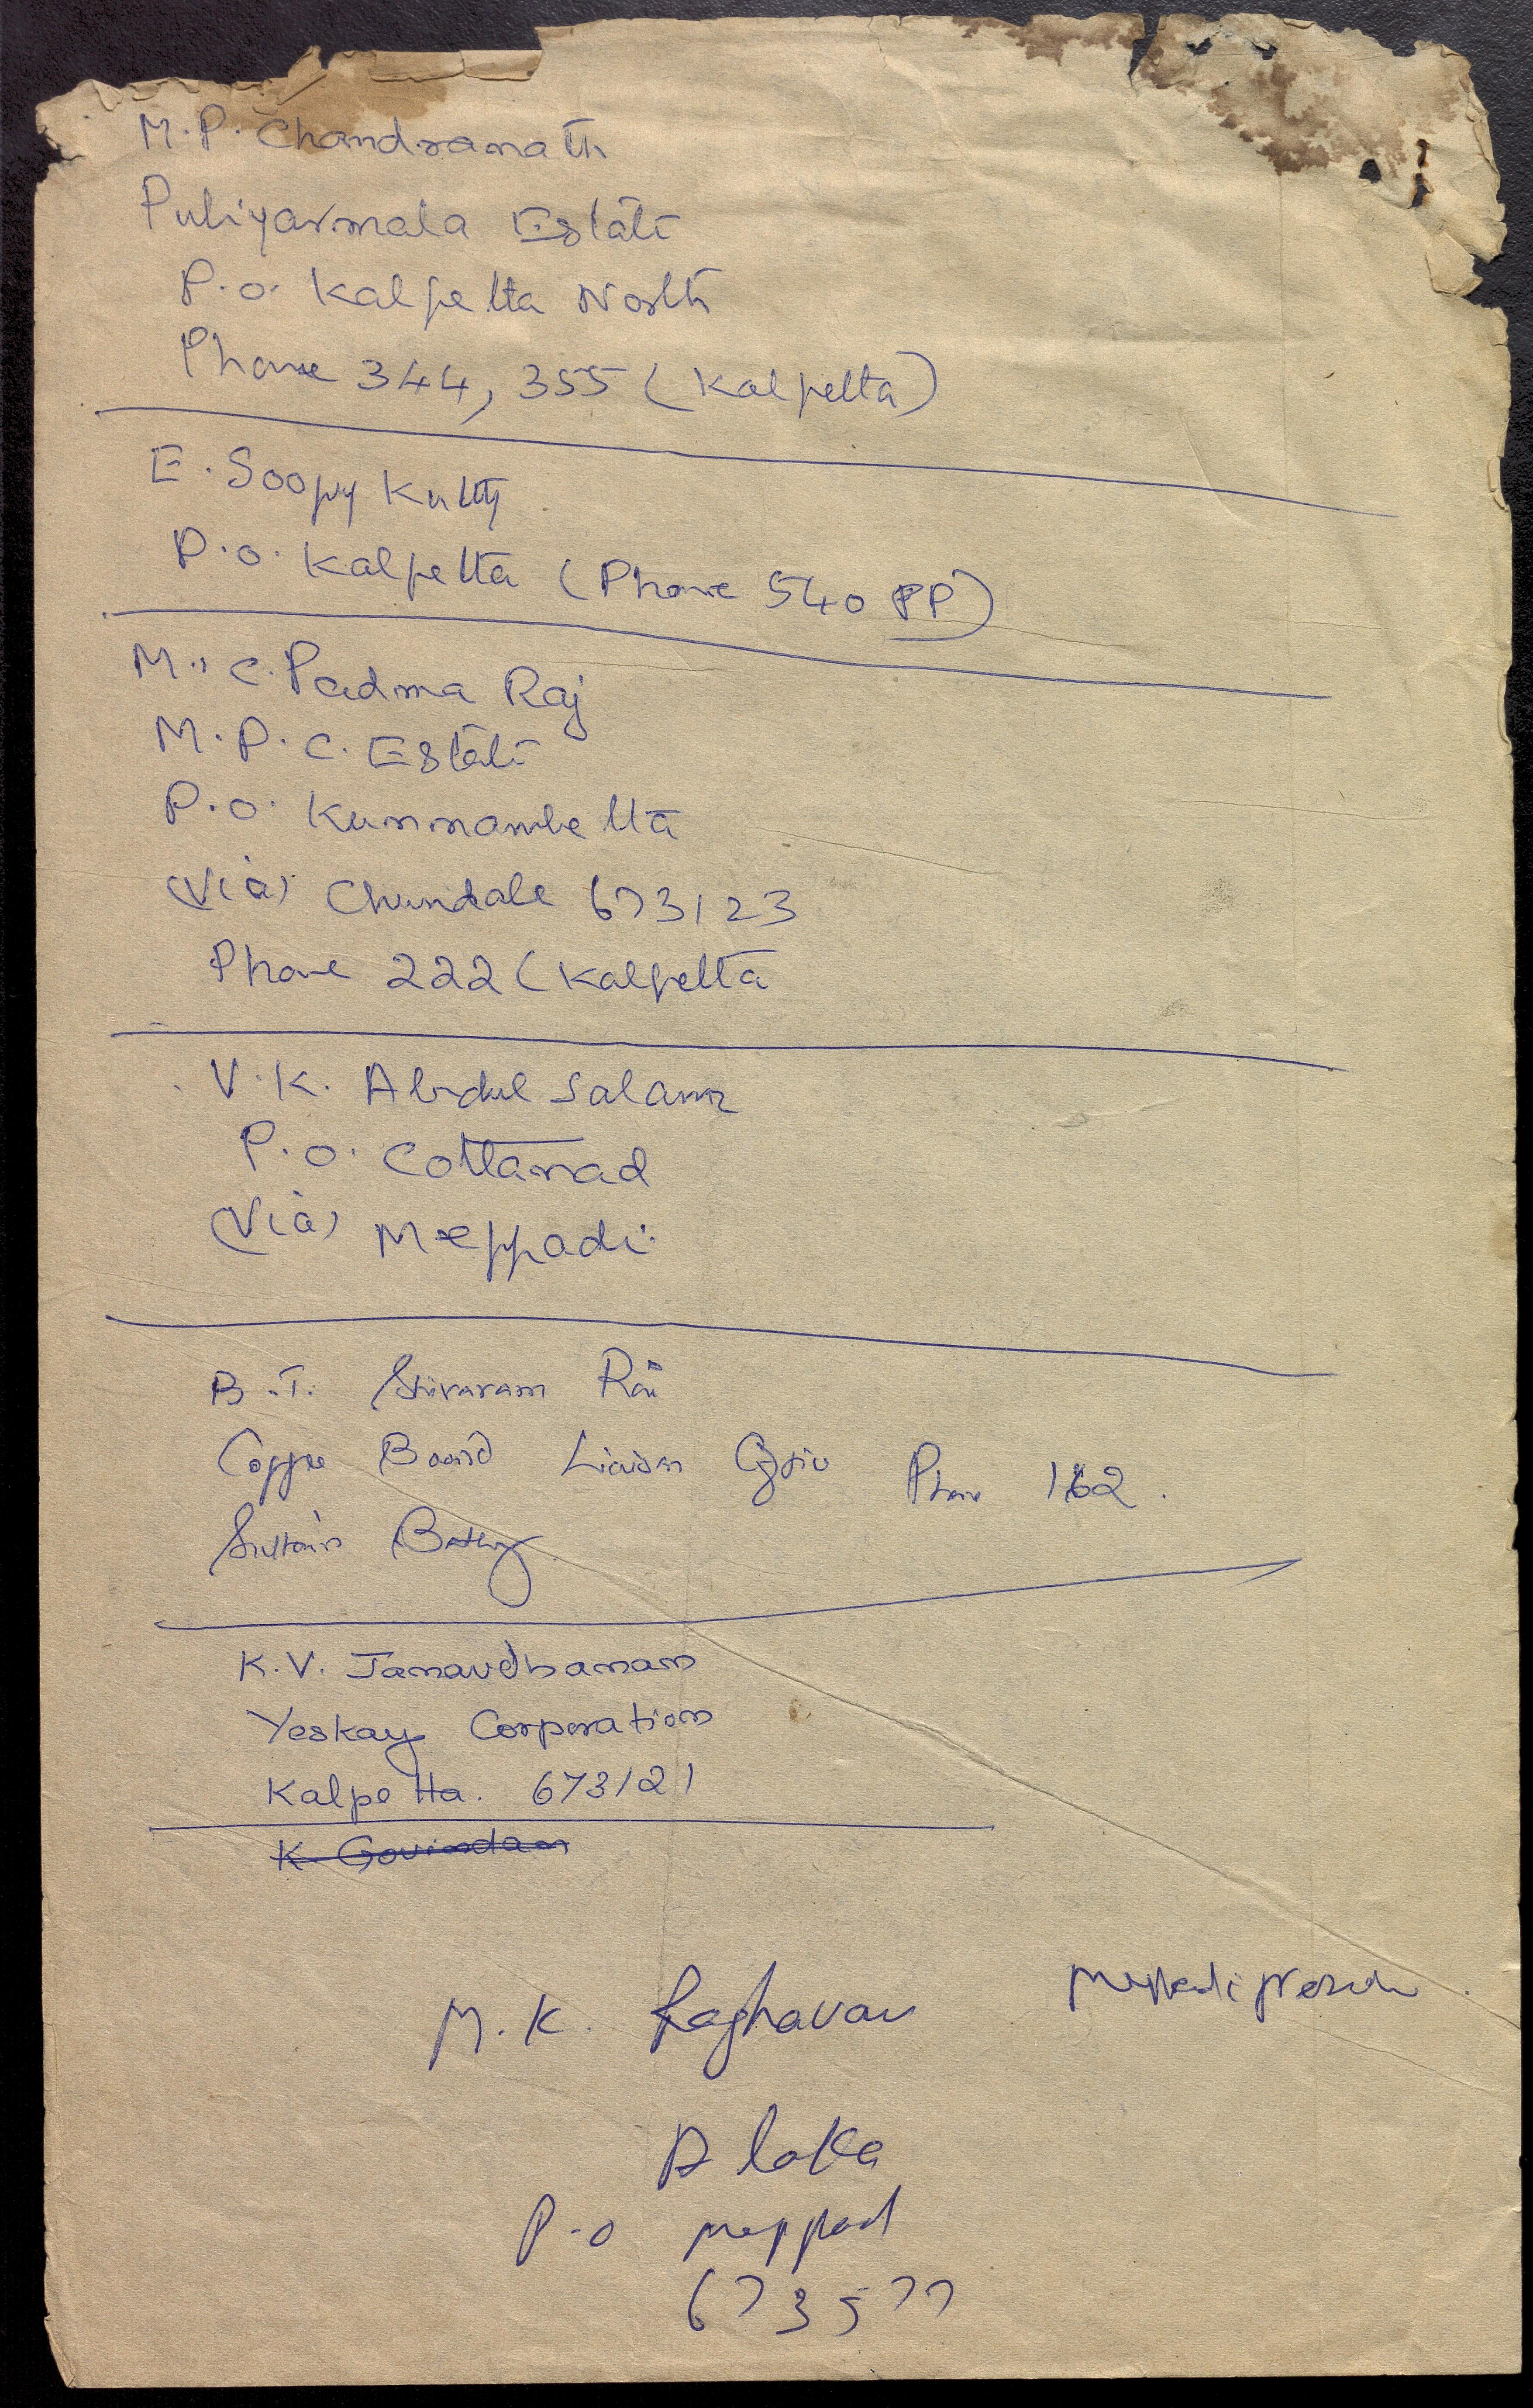 M.P. Chandranath
Puliyarmala Estate
P.O. Kalpetta North
Phone 344, 355 (Kalpetta)
E. Soopy Kutty
P.O. Kalpetta (Phone 540 PP)
M.. C. Padma Raj
M.P.C. Estate
P.O. Kunnambetta
(Via) Chundale 673123
Phone 222 (Kalpetta
V.K. Abdul Salam
P.O. Cottanad
(Via) Meppadi
B.T. Shivaram Rai
Coffee Board Liaison Office Phone 162.
Sultan's Bathery
K.V. Janardhanan
Yeskay Corporation
Kalpetta. 673121
K. Govindan
M.K. Raghavan
P.O meppad
673577